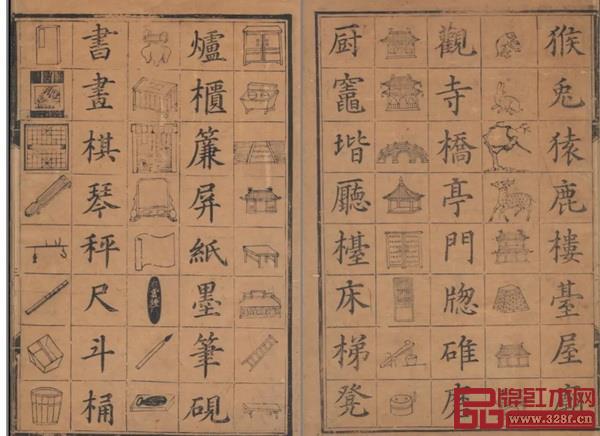 猴兎猿鹿樓臺屋
觀寺橋亭門牕碓磨
厨竈堦廳檯床梯凳
爐櫃簾屏紙墨筆硯
書畫棋琴秤尺斗桶
品牌红木网
www.328f.cn